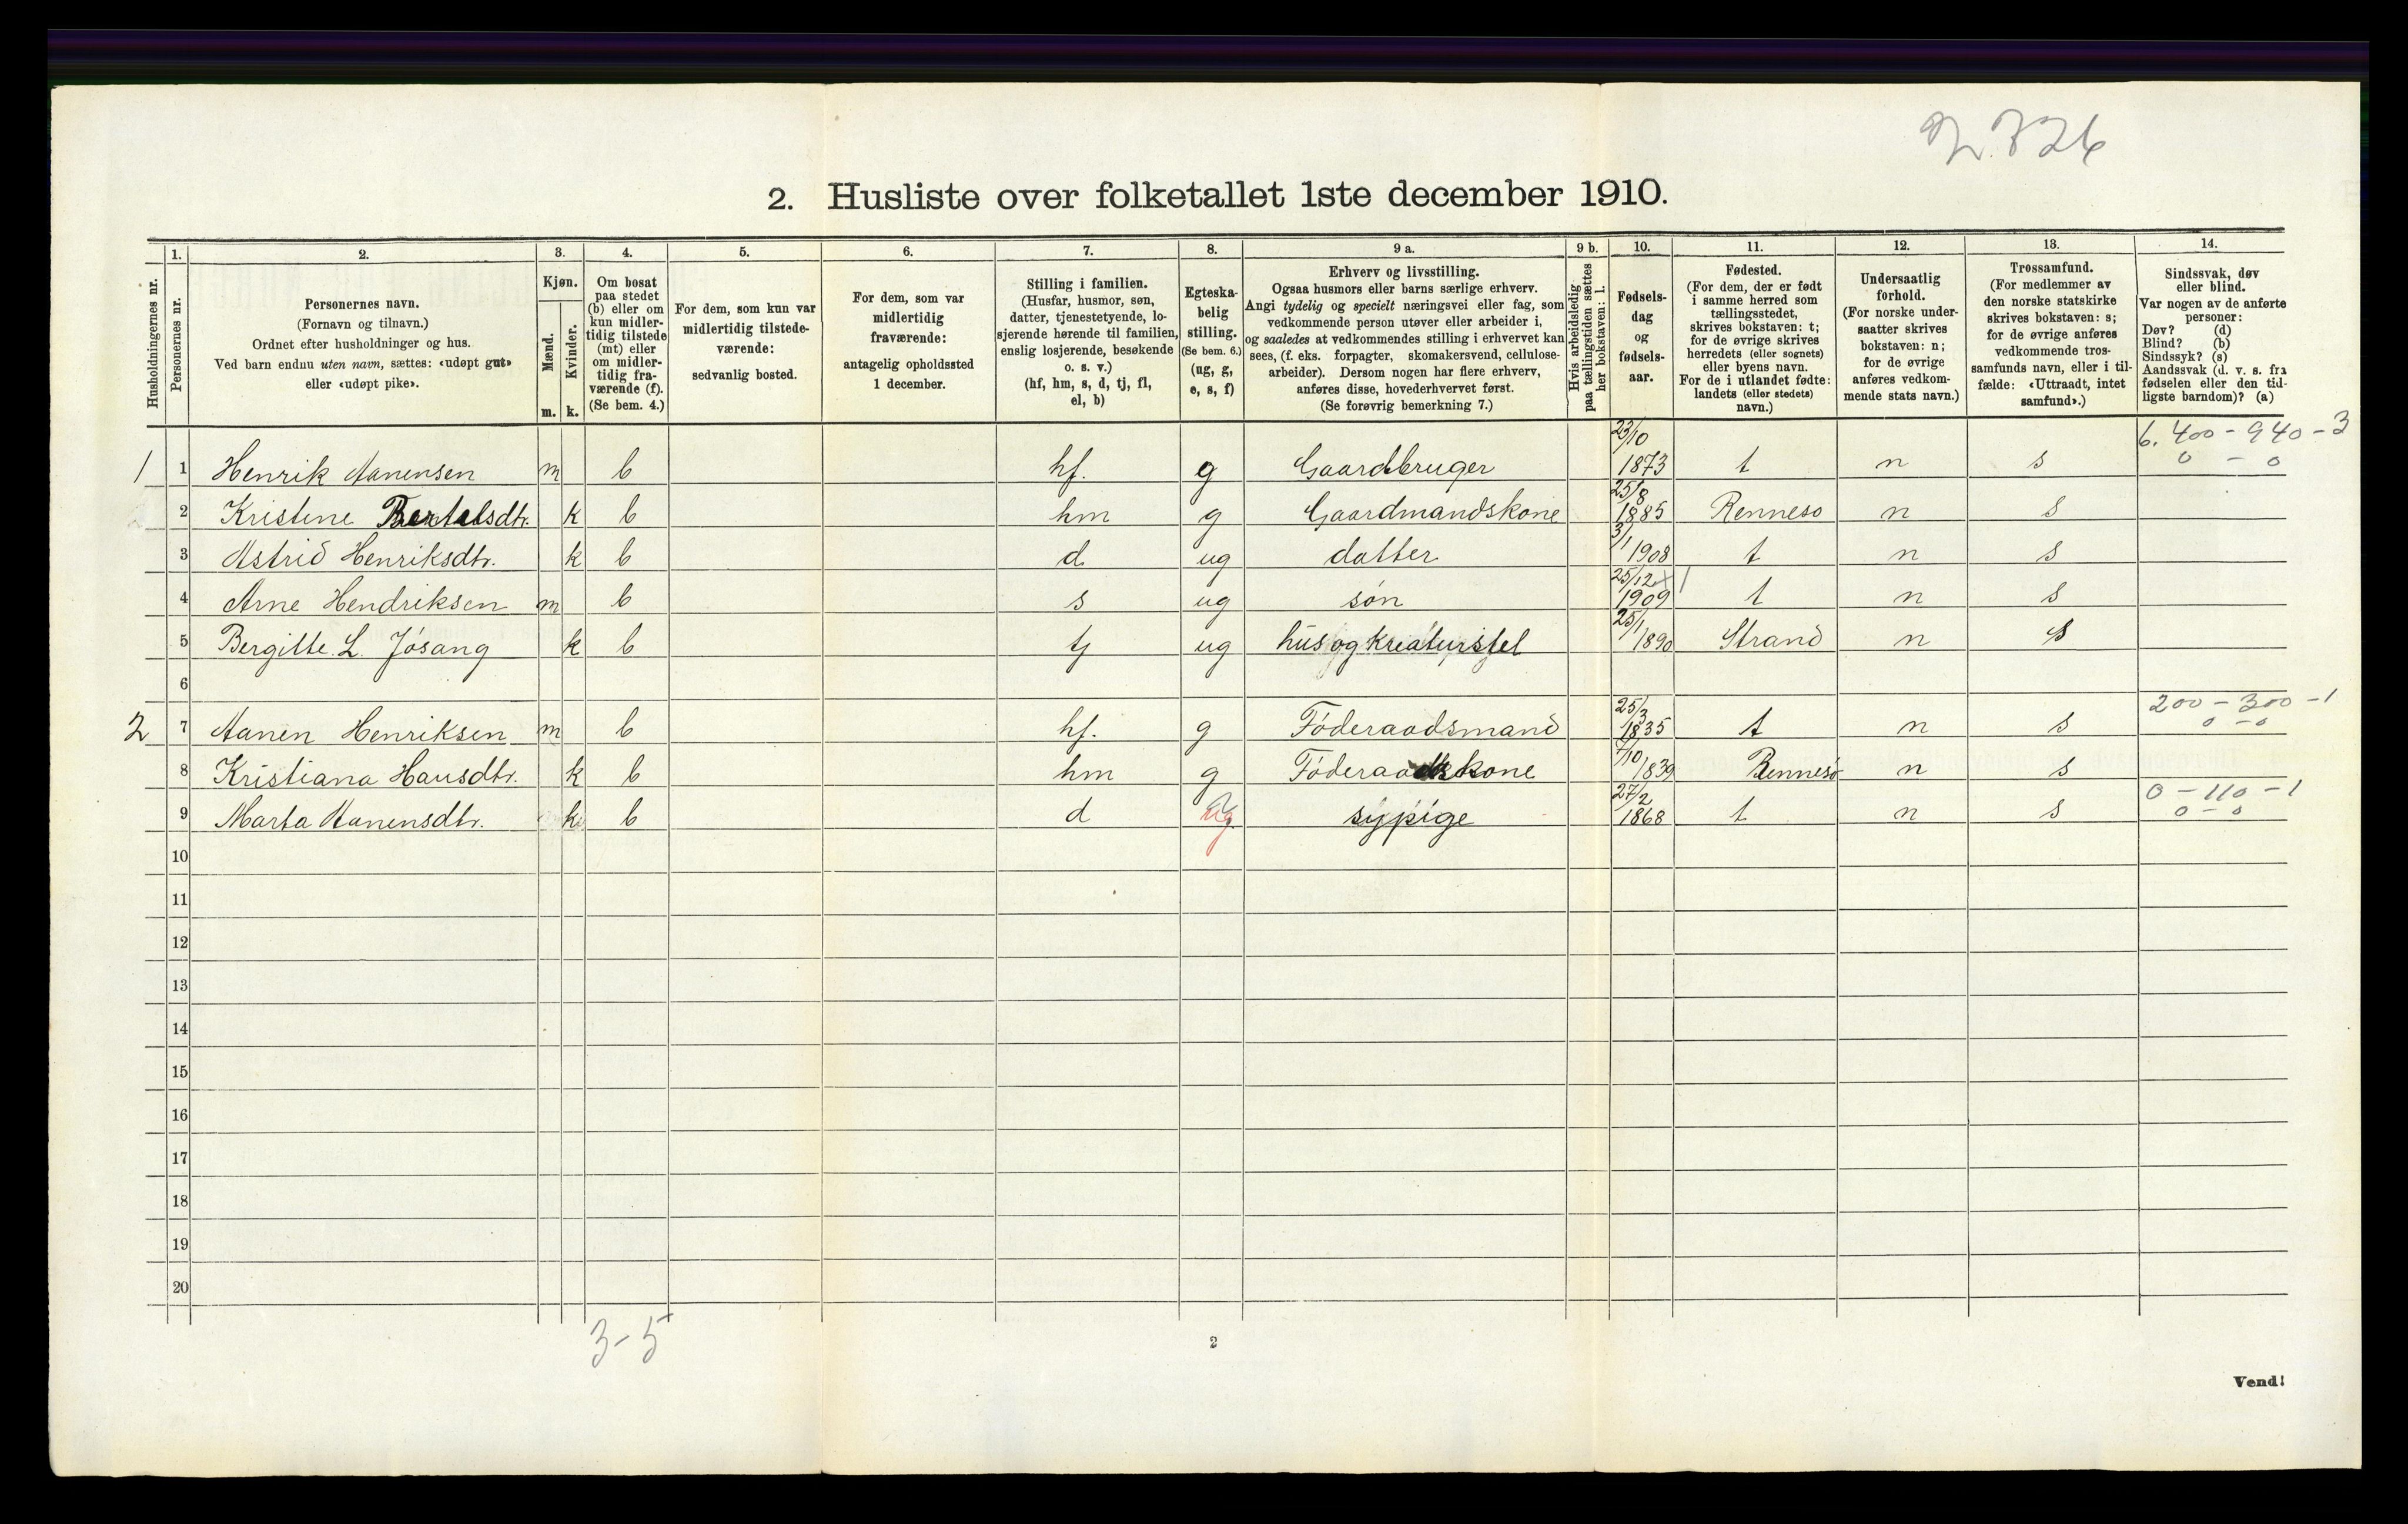 2. Husliste over folketallet 1ste december 1910.
Husholdningernes nr.
1.
Personernes nr.
2.
Personernes navn.
(Fornavn og tilnavn.)
Ordnet efter husholdninger og hus.
Ved barn endnu uten navn, sættes: «udøpt gut»
eller «udøpt pike».
3.
Kjøn.
Mænd.
Kvinder.
m.
k.
4.
Om bosat
paa stedet
(b) eller om
kun midler-
tidig tilstede
(mt) eller
om midler-
tidig fra-
værende (f).
(Se bem. 4.)
5.
For dem, som kun var
midlertidig tilstede-
værende:
sedvanlig bosted.
6.
For dem, som var
midlertidig
fraværende:
antagelig opholdssted
1 december.
7.
Stilling i familien.
(Husfar, husmor, søn,
datter, tjenestetyende, lo-
sjerende hørende til familien,
enslig losjerende, besøkende
o. s. v.)
(hf, hm, s, d, tj, fl,
el, b)
8.
Egteska-
belig
stilling.
(Se bem. 6.)
(ug, g,
e, s, f)
9 a.
Erhverv og livsstilling.
Ogsaa husmors eller barns særlige erhverv.
Angi tydelig og specielt næringsvei eller fag, som
vedkommende person utøver eller arbeider i,
og saaledes at vedkommendes stilling i erhvervet kan
sees, (f. eks. forpagter, skomakersvend, cellulose-
arbeider). Dersom nogen har flere erhverv,
anføres disse, hovederhvervet først.
(Se forøvrig bemerkning 7.)
9 b.
Hvis arbeidsledig
paa tællingstiden sættes
her bokstaven: l.
10.
Fødsels-
dag
og
fødsels-
aar.
11.
Fødested.
(For dem, der er født
i samme herred som
tællingsstedet,
skrives bokstaven: t;
for de øvrige skrives
herredets (eller sognets)
eller byens navn.
For de i utlandet fødte:
landets (eller stedets)
navn.)
12.
Undersaatlig
forhold.
(For norske under-
saatter skrives
bokstaven: n;
for de øvrige
anføres vedkom-
mende stats navn.)
13.
Trossamfund.
(For medlemmer av
den norske statskirke
skrives bokstaven: s;
for de øvrige anføres
vedkommende tros-
samfunds navn, eller i til-
fælde: «Uttraadt, intet
samfund».)
14.
Sindssvak, døv
eller blind.
Var nogen av de anførte
personer:
Døv? (d)
Blind? (b)
Sindssyk? (s)
Aandssvak (d. v. s. fra
fødselen eller den tid-
ligste barndom)? (a)
6.400 - 940 - 3
1 1 Henrik Aanensen m b hf. g Gaardbruger 23/10 1873 t n s 0 - 0
2 Kristine Bertelsdtr. k b hm g Gaardmandskone 25/8 1885 Renneso n s
3 Astrid Henriksdtr. k b d ug datter 3/1 1908 t n s
4 Arne Hendriksen m b s ug søn 25/12 1909 t n s
5 Bergitte L. Jósang k b tj ug hus og kreaturstel 25/1 1890 Strand n s
6
200 - 300 - 1
2 7 Aanen Henriksen m b hf. g Fóderaadsmand 25/3 1835 t n s 0 - 0
8 Kristiana Hansdtr. k b hm g Fóderaadskone 7/10 1839 Rennesó n s
0 - 110 - 1
9 Marta Aanensdtr. k b d ug sypige 27/2 1868 t n s 0 - 0
10
11
12
13
14
15
16
17
18
19
20
3-5
2
Vend!